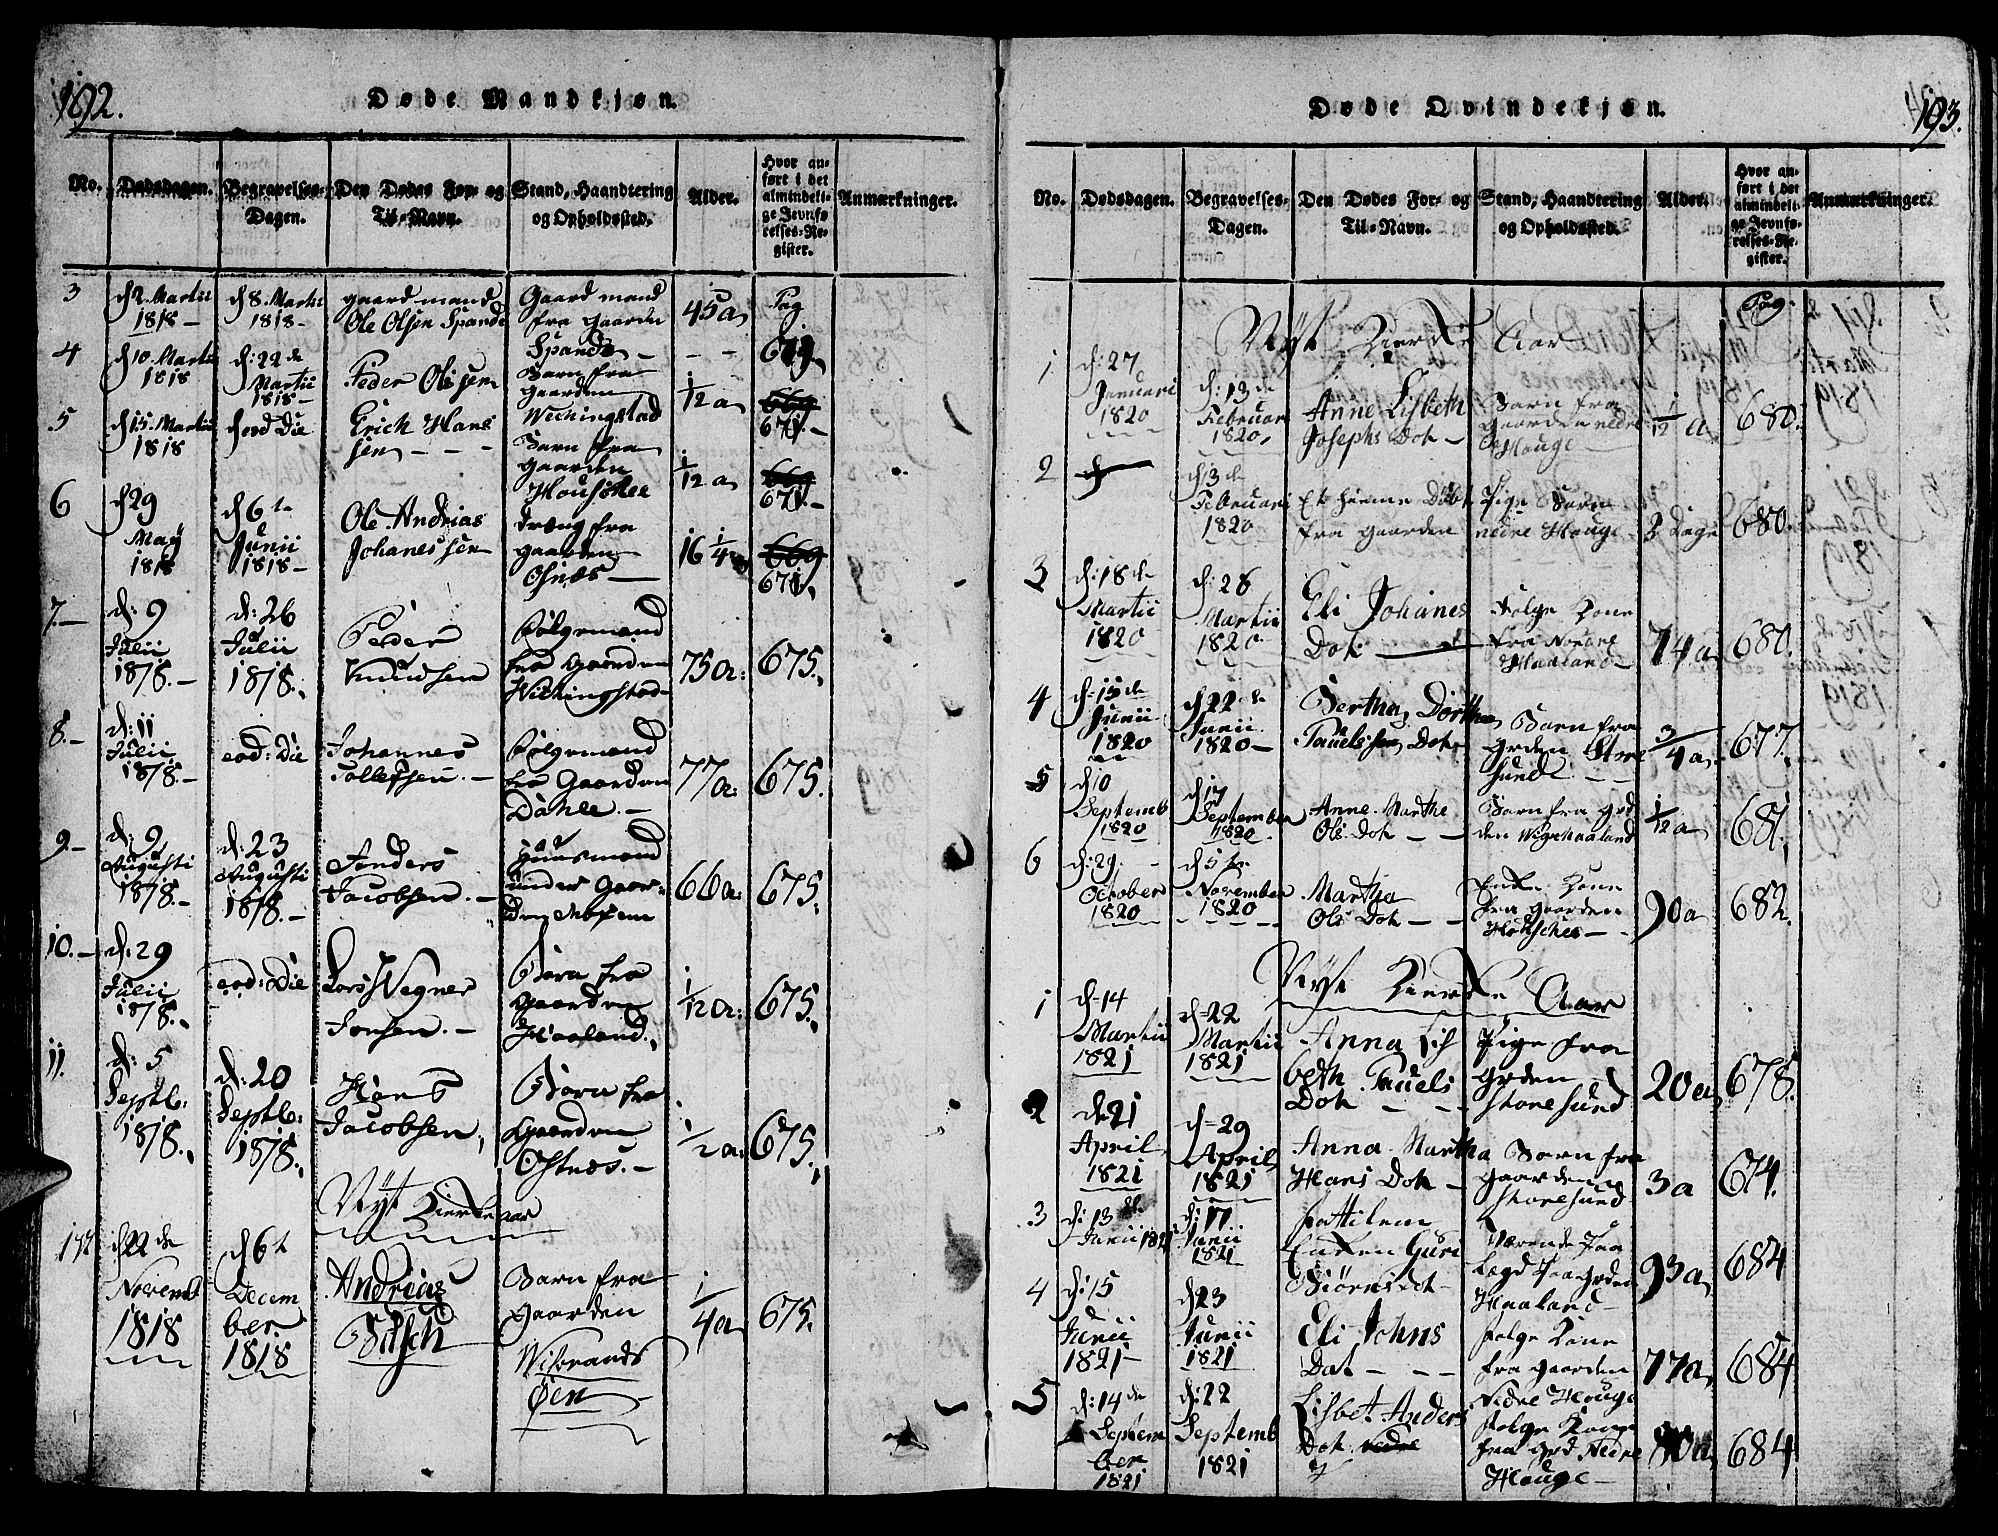 192.
Døde Mandkjøn.
No.
Dødsdagen.
Begravelses-
Dagen.
Den Dødes For- og
Til-Navn.
Stand, Haandtering
og Opholdssted.
Alder.
Hvor an-
ført i det
almindeli-
ge Jevnfø-
relses-Re-
gister.
Anmærkninger.
3
d 2. Martii
1818 —
d 8. Martii
1818 —
gaardmand
Ole Olsen Spande
Gaardmand
fra Gaarden
Spande —
45 a
Pag
679
4
d 10. Martii
1818
d: 22 de
Martii
1818 —
Peder Olisen
Barn fra
Gaarden
Wickingstad
1/12 a
669
671. —
5
d 15. Martii
1818
d eod Die
Erich Hans
sen — — -
Barn fra
gaarden
Houschee
1/12 a
669
671. —
6
d 29
May
1818
d 6 te
Junii
1818 —
Ole Andrias
Johanessen
dreng fra
gaarden
Osnæs —
16 1/4
669
671.
7. —
d: 9
Julii
1818. —
d: 26
Julii
1818. —
Peder
Knudsen
Følgemand
fra Gaarden
Wickingstad —
75 a:
675.
8. —
d: 11
Julii
1818. —
eod: Die
Johannes
Tollefsen. —
Følgemand
fra Gaarden
Dahle. —
77 a:
675.
9. —
d: 9
Augusti
1818. —
d: 23
Augusti
1818. —
Anders
Jacobsen. —
Huusmand
under Gaar-
den
66 a:
675.
10. —
d: 29
Julii
1818. —
eod: Die
Lars Wegner
Jonsen. —
Barn fra
Gaarden
Haaland.
1/12 a:
675.
11.
d: 5
Septb:
1818.
d: 20
Septb:
1818.
Hans
Jacobsen,
Barn fra
Gaarden
Osnæs. —
1/2 a:
675.
Nyt Kierke aar
d 22 de
Novemb
1818
d 6 t
Decem
ber
1818
Andrias
Barn fra
gaarden
Wibrands
Øen
1/4 a
675.
193.
Døde Qvindekjøn.
No.
Dødsdagen.
Begravelses-
Dagen.
Den Dødes For- og
Til-Navn.
Stand, Haandtering
og Opholdssted.
Alder.
Hvor an-
ført i det
almindeli-
ge Jevnfø-
relses-Re-
gister.
Anmærkninger.
Pag.
Nyt Kierke Aar
1
d: 27
Januari
1820
d: 13 de
Februari
1820,
Anne Lisbeth
Josephs Dot —
Barn fra
Gaarden nedre
Houge
1/12 a
680.
2
d 13 de
Februari
1820
Et hieme Døbt
fra gaarden
Pige Barn
nedre Houge
3 Dage
680.
3
d: 18 de
Martii
1820
d: 26
Martii
1820
Eli Johanes
Dot —
Følge Kone
fra Nedre
Haaland —
74 a
680.
4
d: 15 de
Junii
1820
d 22 de
Junii
1820 —
Bertha Dorthea
Pauels Dot
Barn fra
Grden Store
Sund — —
3/4 a
677.
5
d 10
Septemb
1820
d 17
September
1820
Anne Marthe
Ols Dot — —
Barn fra Grd
den
1/12 a
681.
6
d: 29
October
1820
d 5 te
November
1820
Martha
Ols Dot — —
Enke Kone
fra gaarden
Houschee —
90 a
682.
Nyt Kierke Aar
1
d = 14
Martii
1821
d = 22
Martii
1821
Anna Lis
beth Pauels
Dot — — -
Pige fra
Grden
Storesund
20 a
678.
2
d 21
April
1821
d = 29
April
1821
Anna Martha
Hans Dot —
Barn fra
Gaarden
Storesund
3 a
674.
3
d: 13 de
Junii 1821
d: 17
Junii
1821
Fattilem
Enken Guri
Biørns dot —
Værende Paa
Legd Paa Grden
Haaland —
93 a
684
4
d: 15
Junii
1821 —
d 23
Junii
1821
Eli Johns
Dat — — -
Følge Kone
fra gaarden
Nedre Houge
77 a
684
5
d: 14 de
Septem
ber
1821
d: 22
Septemb
1821
Lisbet Anders
Dot nedre
Følge Kone
fra Grd Nedre
Houge —
684